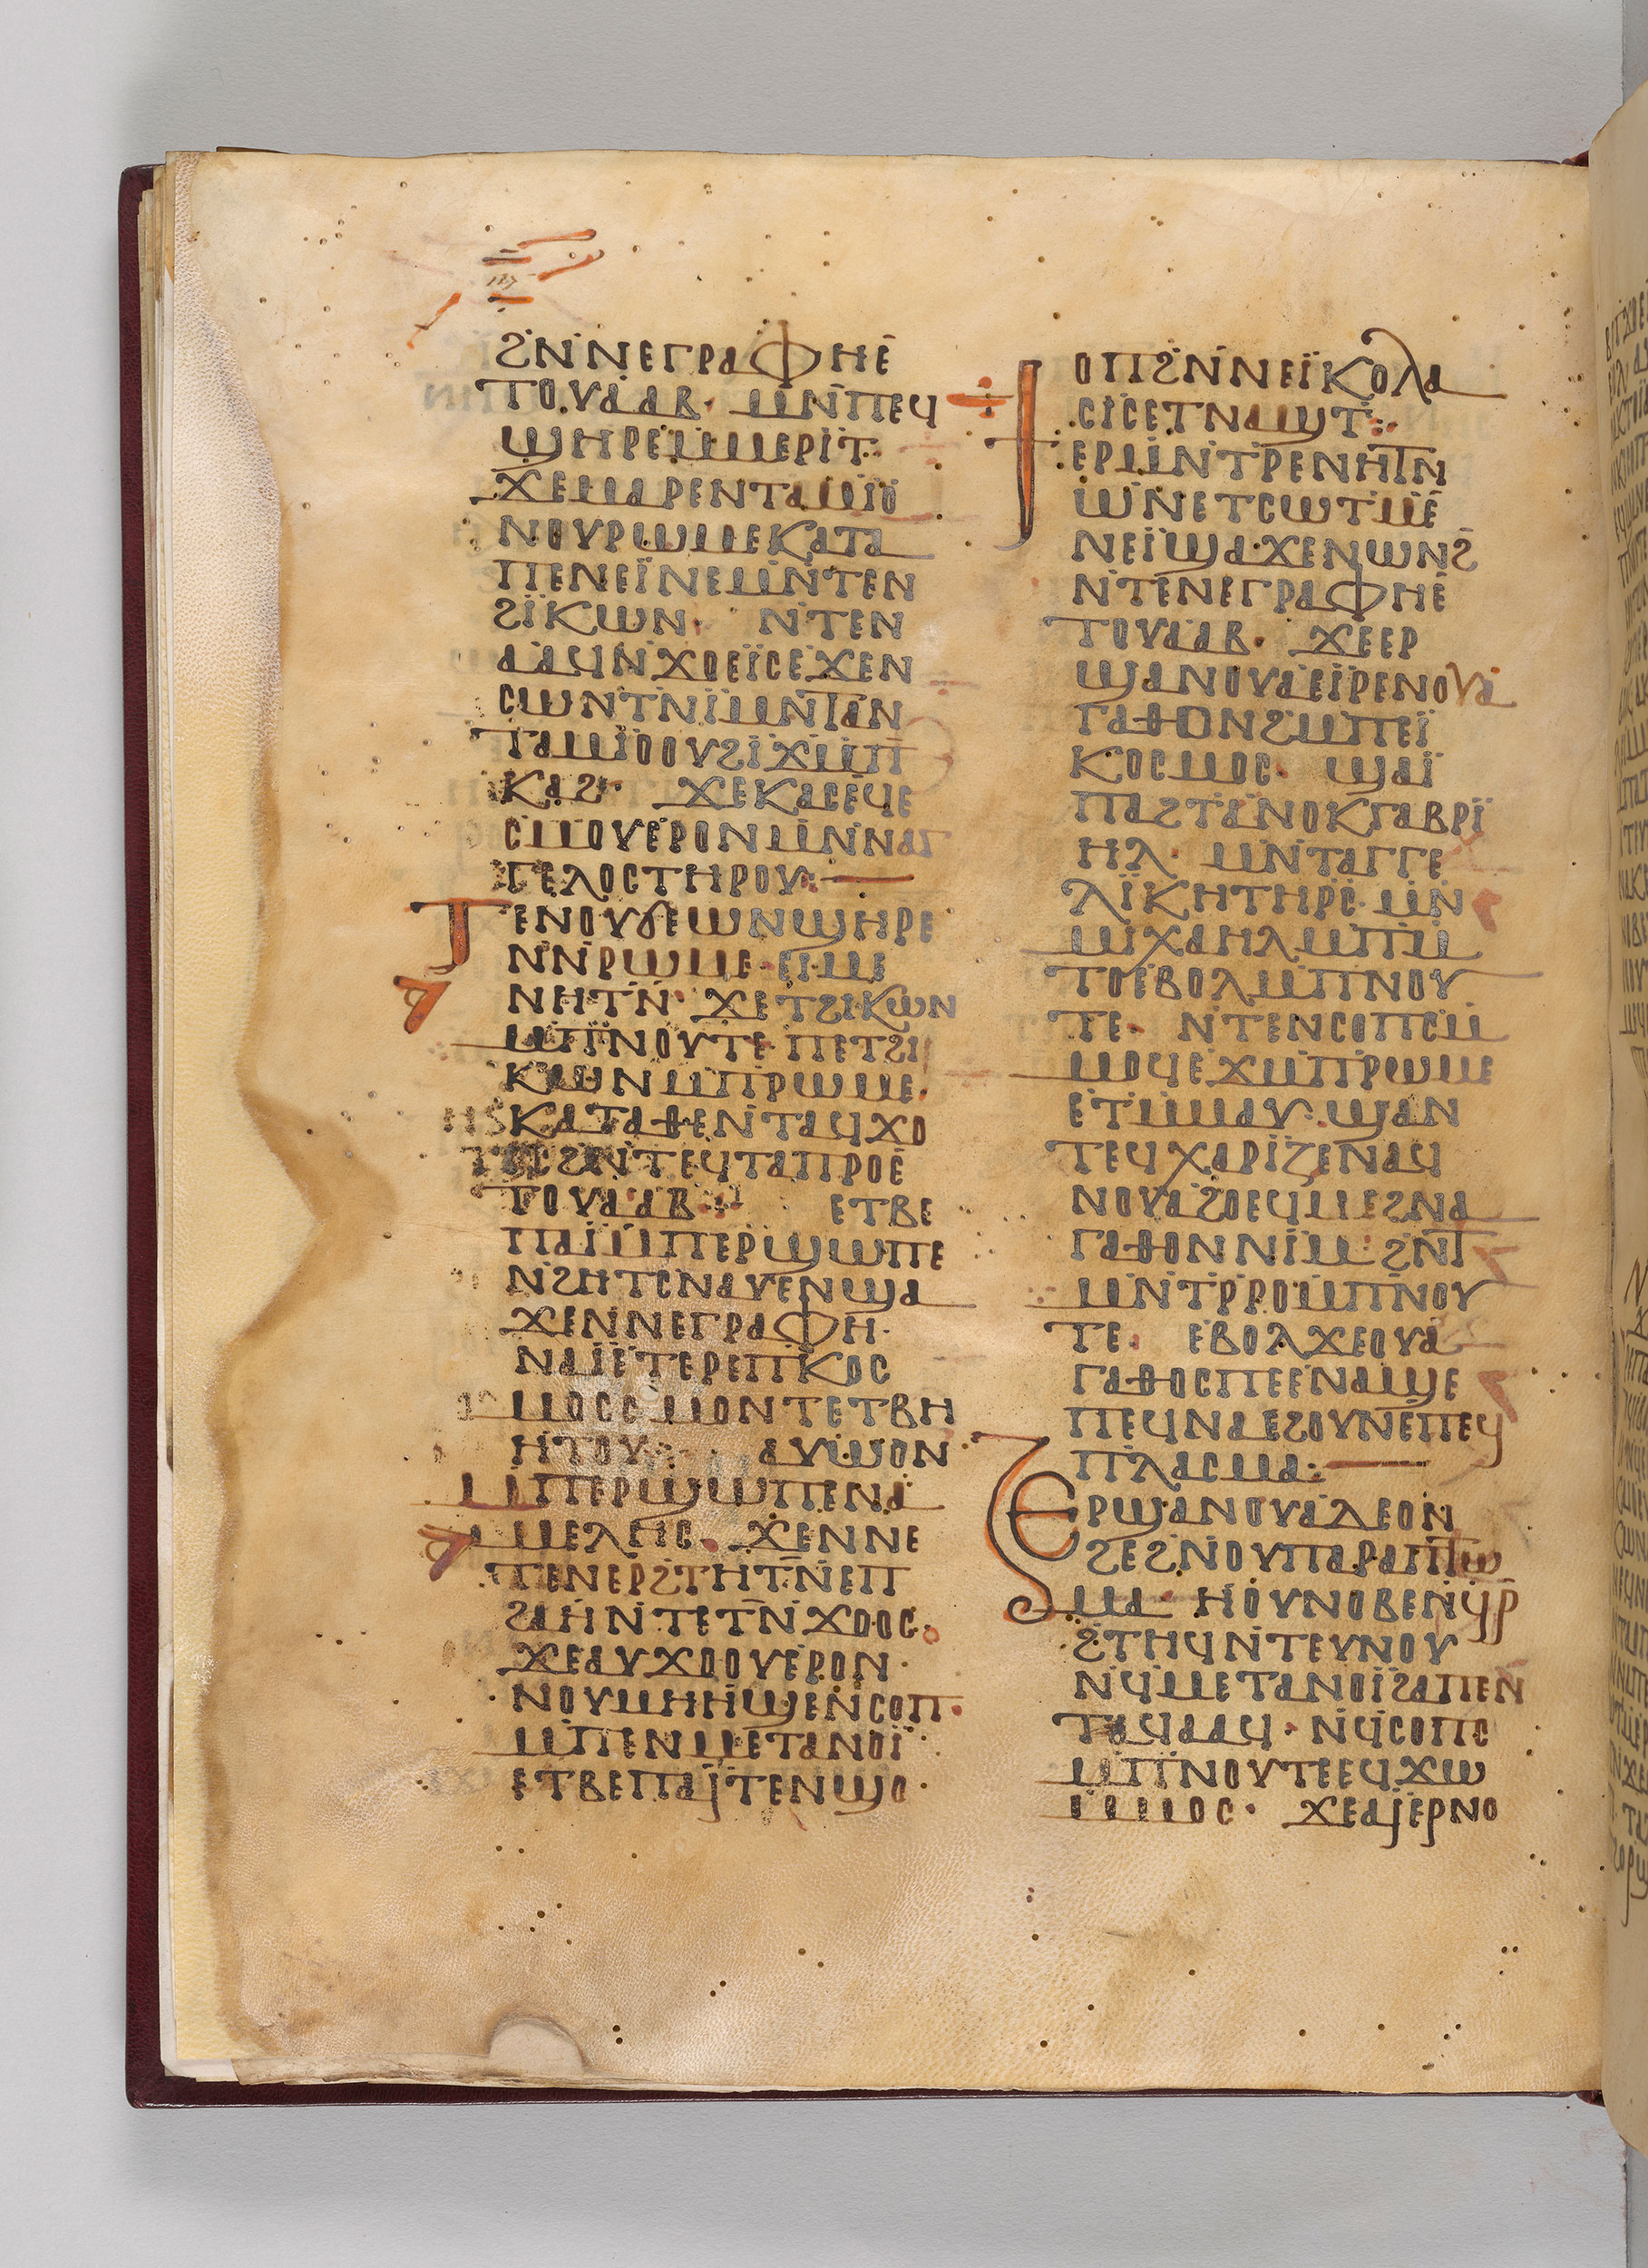 ϩⲛⲛⲉⲅⲣⲁⲫⲏⲉ
ⲧⲟⲩⲁⲁⲃ· ⲙⲛⲡⲉϥ
ϣⲏⲣⲉⲙⲙⲉⲣⲓⲧ·
ϫⲉⲙⲁⲣⲉⲛⲧⲁⲙⲓⲟ
ⲛⲟⲩⲣⲱⲙⲉⲕⲁⲧⲁ
ⲡⲉⲛⲉⲓⲛⲉⲙⲛⲧⲉⲛ
ϩⲓⲕⲱⲛ· ⲛⲧⲉⲛ
ⲁⲁϥⲛϫⲟⲉⲓⲥⲉϫⲉⲛ
ⲥⲱⲛⲧⲛⲓⲙⲛⲧⲁⲛ
ⲧⲁⲙⲓⲟⲟⲩϩⲓϫⲙⲡ
ⲕⲁϩ· ϫⲉⲕⲁⲥⲉϥⲉ
ⲥⲙⲟⲩⲉⲣⲟⲛⲙⲛⲛⲁⲅ
ⲅⲉⲗⲟⲥⲧⲏⲣⲟⲩ:—
ⲧⲉⲛⲟⲩϭⲉⲱⲛϣⲏⲣⲉ
ⲛⲛⲣⲱⲙⲉ·ⲉⲓⲙⲉ
ⲛⲏⲧⲛ· ϫⲉⲧϩⲓⲕⲱⲛ
ⲙⲡⲛⲟⲩⲧⲉ·ⲡⲉⲧϩⲓ
ⲕⲱⲛⲙⲡⲣⲱⲙⲉ·
ⲕⲁⲧⲁⲑⲉⲛⲧⲁϥϫⲟ
ⲟⲥϩⲛⲧⲉϥⲧⲁⲡⲣⲟⲉ
ⲧⲟⲩⲁⲁⲃ· ⲉⲧⲃⲉ
ⲡⲁⲓⲙⲡⲉⲣϣⲱⲡⲉ
ⲛϩⲏⲧⲥⲛⲁⲩⲉⲛϣⲁ
ϫⲉⲛⲛⲉⲅⲣⲁⲫⲏ·
ⲛⲁⲓⲉⲧⲉⲣⲉⲡⲕⲟⲥ
ⲙⲟⲥⲥⲙⲟⲛⲧⲉⲧⲃⲏ
ⲏⲧⲟⲩ· ⲁⲩⲱⲟⲛ
ⲙⲡⲉⲣϣⲱⲡⲉⲛⲁ
ⲙⲉⲗⲏⲥ· ϫⲉⲛⲛⲉ
ⲧⲉⲛⲉⲣϩⲧⲏⲧⲛⲉⲡ
ϩⲁⲏⲛⲧⲉⲧⲛϫⲟⲟⲥ·
ϫⲉⲁⲩϫⲟⲟⲩⲉⲣⲟⲛ·
ⲛⲟⲩⲙⲏⲏϣⲉⲛⲥⲟⲡ·
ⲙⲡⲉⲛⲙⲉⲧⲁⲛⲟⲓ·
ⲉⲧⲃⲉⲡⲁⲓⲧⲉⲛϣⲟ·
ⲟⲡϩⲛⲛⲉⲓⲕⲟⲗⲁ
ⲥⲓⲥⲉⲧⲛⲁϣⲧ:
ⲉⲣⲙⲛⲧⲣⲉⲛⲏⲧⲛ
ⲱⲛⲉⲧⲥⲱⲧⲙⲉ
ⲛⲉⲓϣⲁϫⲉⲛⲱⲛϩ
ⲛⲧⲉⲛⲉⲅⲣⲁⲫⲏⲉ
ⲧⲟⲩⲁⲁⲃ· ϫⲉⲉⲣ
ϣⲁⲛⲟⲩⲁⲉⲓⲣⲉⲛⲟⲩⲁ
ⲅⲁⲑⲟⲛϩⲙⲡⲉⲓ
ⲕⲟⲥⲙⲟⲥ· ϣⲁⲓ
ⲡⲁϩⲧⲁⲛⲟⲕⲅⲁⲃⲣⲓ
ⲏⲗ· ⲙⲛⲧⲁⲅⲅⲉ
ⲗⲓⲕⲏⲧⲏⲣⲥ·ⲙⲛ
ⲙⲓⲭⲁⲏⲗⲙⲡⲙ
ⲧⲟⲉⲃⲟⲗⲙⲡⲛⲟⲩ
ⲧⲉ· ⲛⲧⲉⲛⲥⲟⲡⲥⲙ
ⲙⲟϥⲉϫⲙⲡⲣⲱⲙⲉ
ⲉⲧⲙⲙⲁⲩ·ϣⲁⲛ
ⲧⲉϥⲭⲁⲣⲓⲍⲉⲛⲁϥ
ⲛⲟⲩⲁϩⲟⲉϥⲙⲉϩⲛⲁ
ⲅⲁⲑⲟⲛⲛⲓⲙ·ϩⲛⲧ
ⲙⲛⲧⲣⲣⲟⲙⲡⲛⲟⲩ
ⲧⲉ· ⲉⲃⲟⲗϫⲉⲟⲩⲁ
ⲅⲁⲑⲟⲥⲡⲉⲉⲛⲁϣⲉ
ⲡⲉϥⲛⲁⲉϩⲟⲩⲛⲉⲡⲉϥ
ⲡⲗⲁⲥⲙⲁ:—
ⲉⲣϣⲁⲛⲟⲩⲁⲇⲉⲟⲛ
ϩⲉϩⲛⲟⲩⲡⲁⲣⲁⲡⲧⲱ
ⲙⲁ· ⲏⲟⲩⲛⲟⲃⲉⲛϥⲣ
ϩⲧⲏϥⲛⲧⲉⲩⲛⲟⲩ
ⲛϥⲙⲉⲧⲁⲛⲟⲓϩⲁⲡⲉⲛ
ⲧⲁϥⲁⲁϥ·ⲛϥⲥⲟⲡⲥ
ⲙⲡⲛⲟⲩⲧⲉⲉϥϫⲱ
ⲙⲙⲟⲥ· ϫⲉⲁⲓⲉⲣⲛⲟ